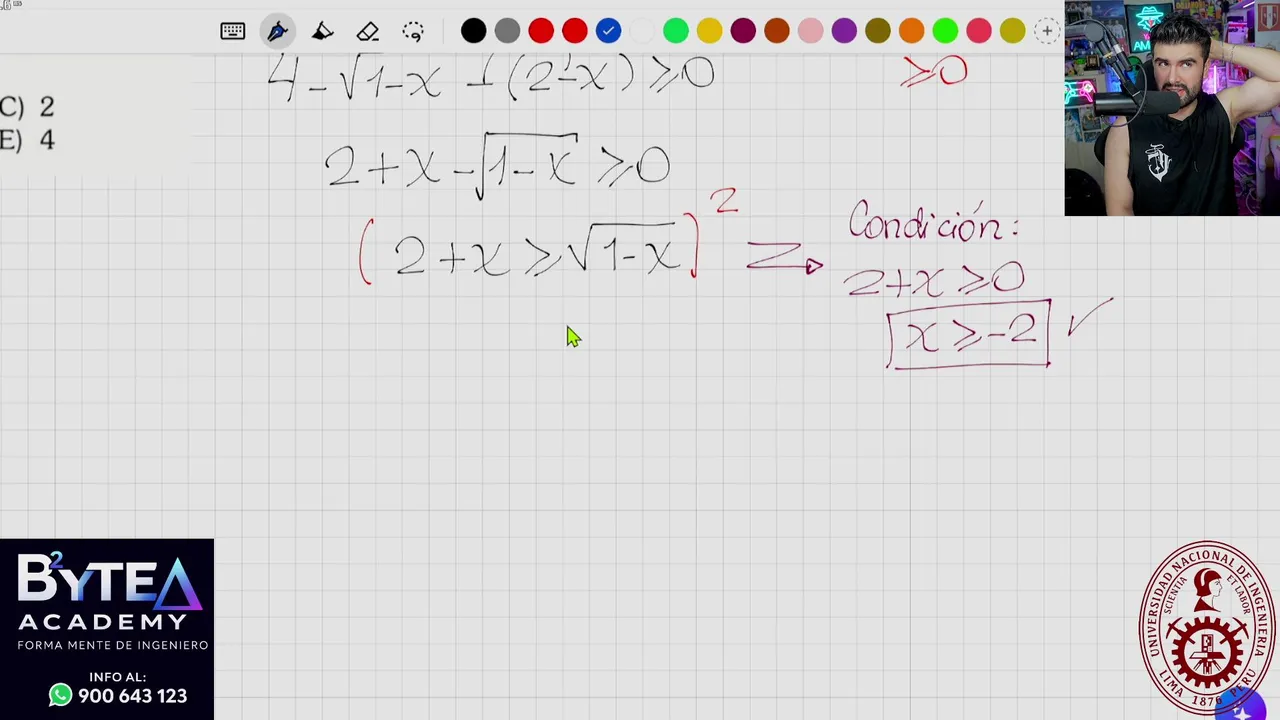 C) 2
E) 4
4 - √1-x - (2-x) ≥ 0
≥0
2+x-√1-x ≥0
(2+x ≥ √1-x)²
Condición:
2+x ≥0
x ≥ -2 ✓
B²YTEΔ
ACADEMY
FORMA MENTE DE INGENIERO
INFO AL:
900 643 123
UNIVERSIDAD NACIONAL DE INGENIERIA
SCIENTIA
ET LABOR
LIMA 1876 PERU